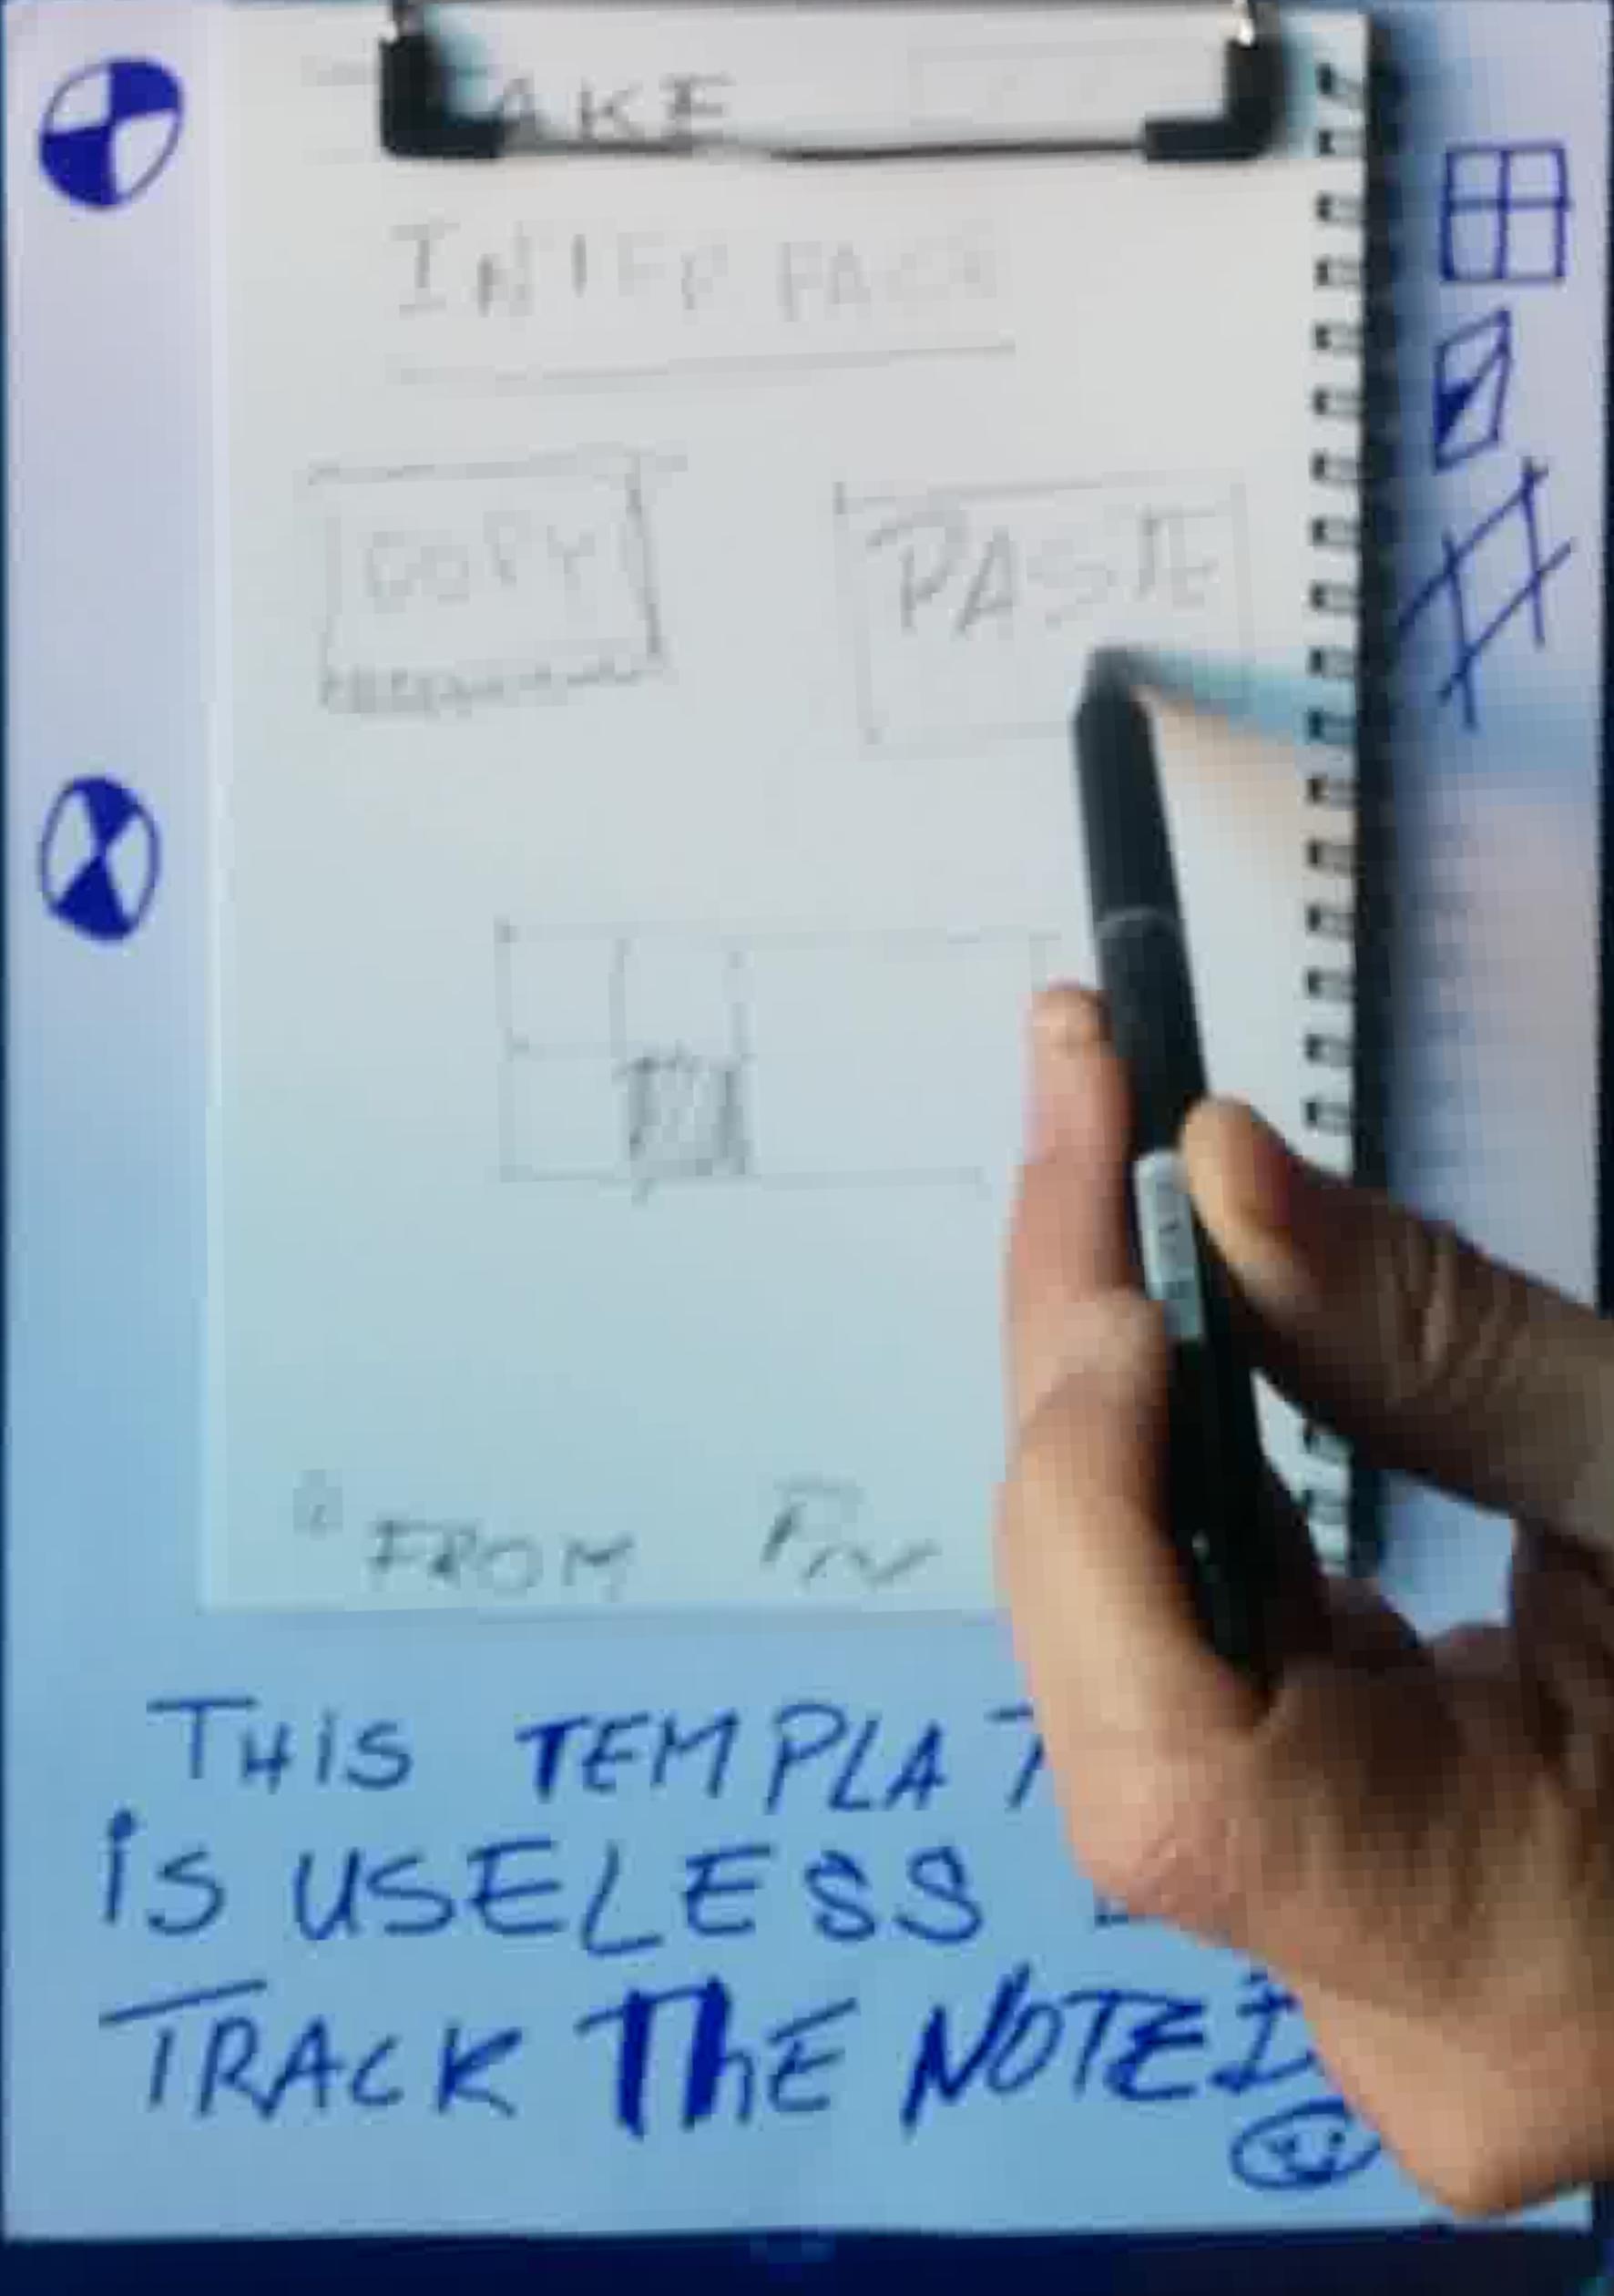 AKE
INTERFACE
COPY PASTE
FROM
THIS TEMPLAT
is USELESS
TRACK ThE NOTE